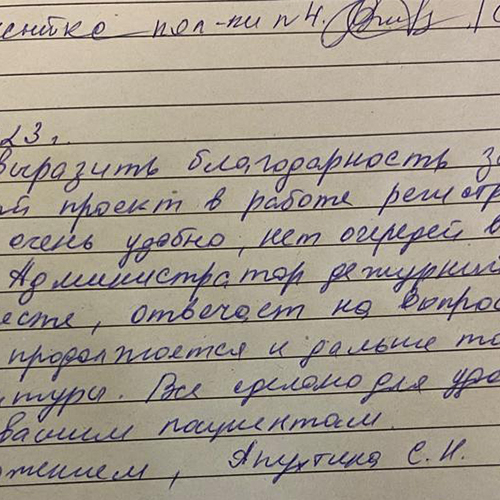 пол-ки n 4.
23 г.
выразить благодарность за
й проект в работе регистр
очень удобно, нет очередей в
Администратор дежурный
есте, отвечает на вопрос
продолжается и дальше та
туры. Все сделано для удо
вашим пациентам.
жением, Апухтина С. Н.